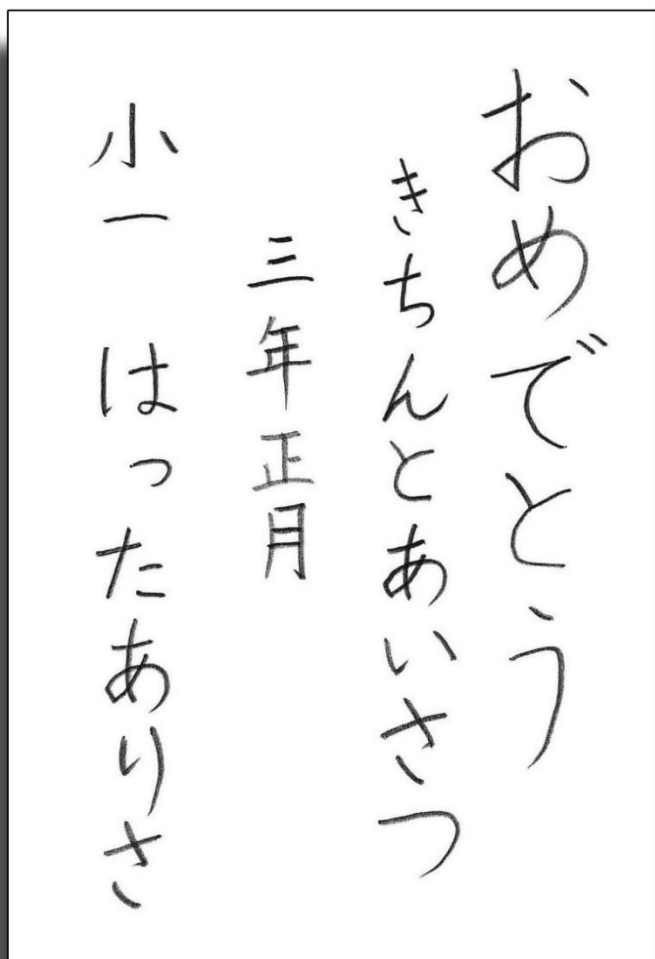 おめでとう
きちんとあいさつ
三年正月
小一 はったありさ